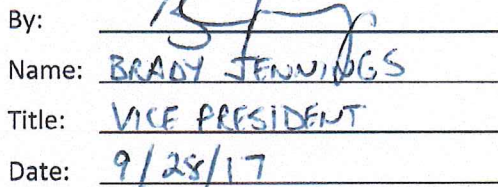 By:
Name: BRADY JENNINGS
Title: VICE PRESIDENT
Date: 9/28/17